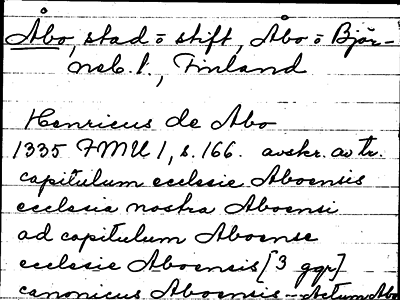 Åbo, stad o stift, Åbo o Björ-
neb. l., Finland
Henricus de Abo
1335 FMU 1, s. 166. avskr. av tr.
capitulum ecclesie Aboensis
ecclesia nostra Aboensi
ad capitulum Aboense
ecclesie Aboensis [3 ggr]
canonicus Aboensis - Actum Abo